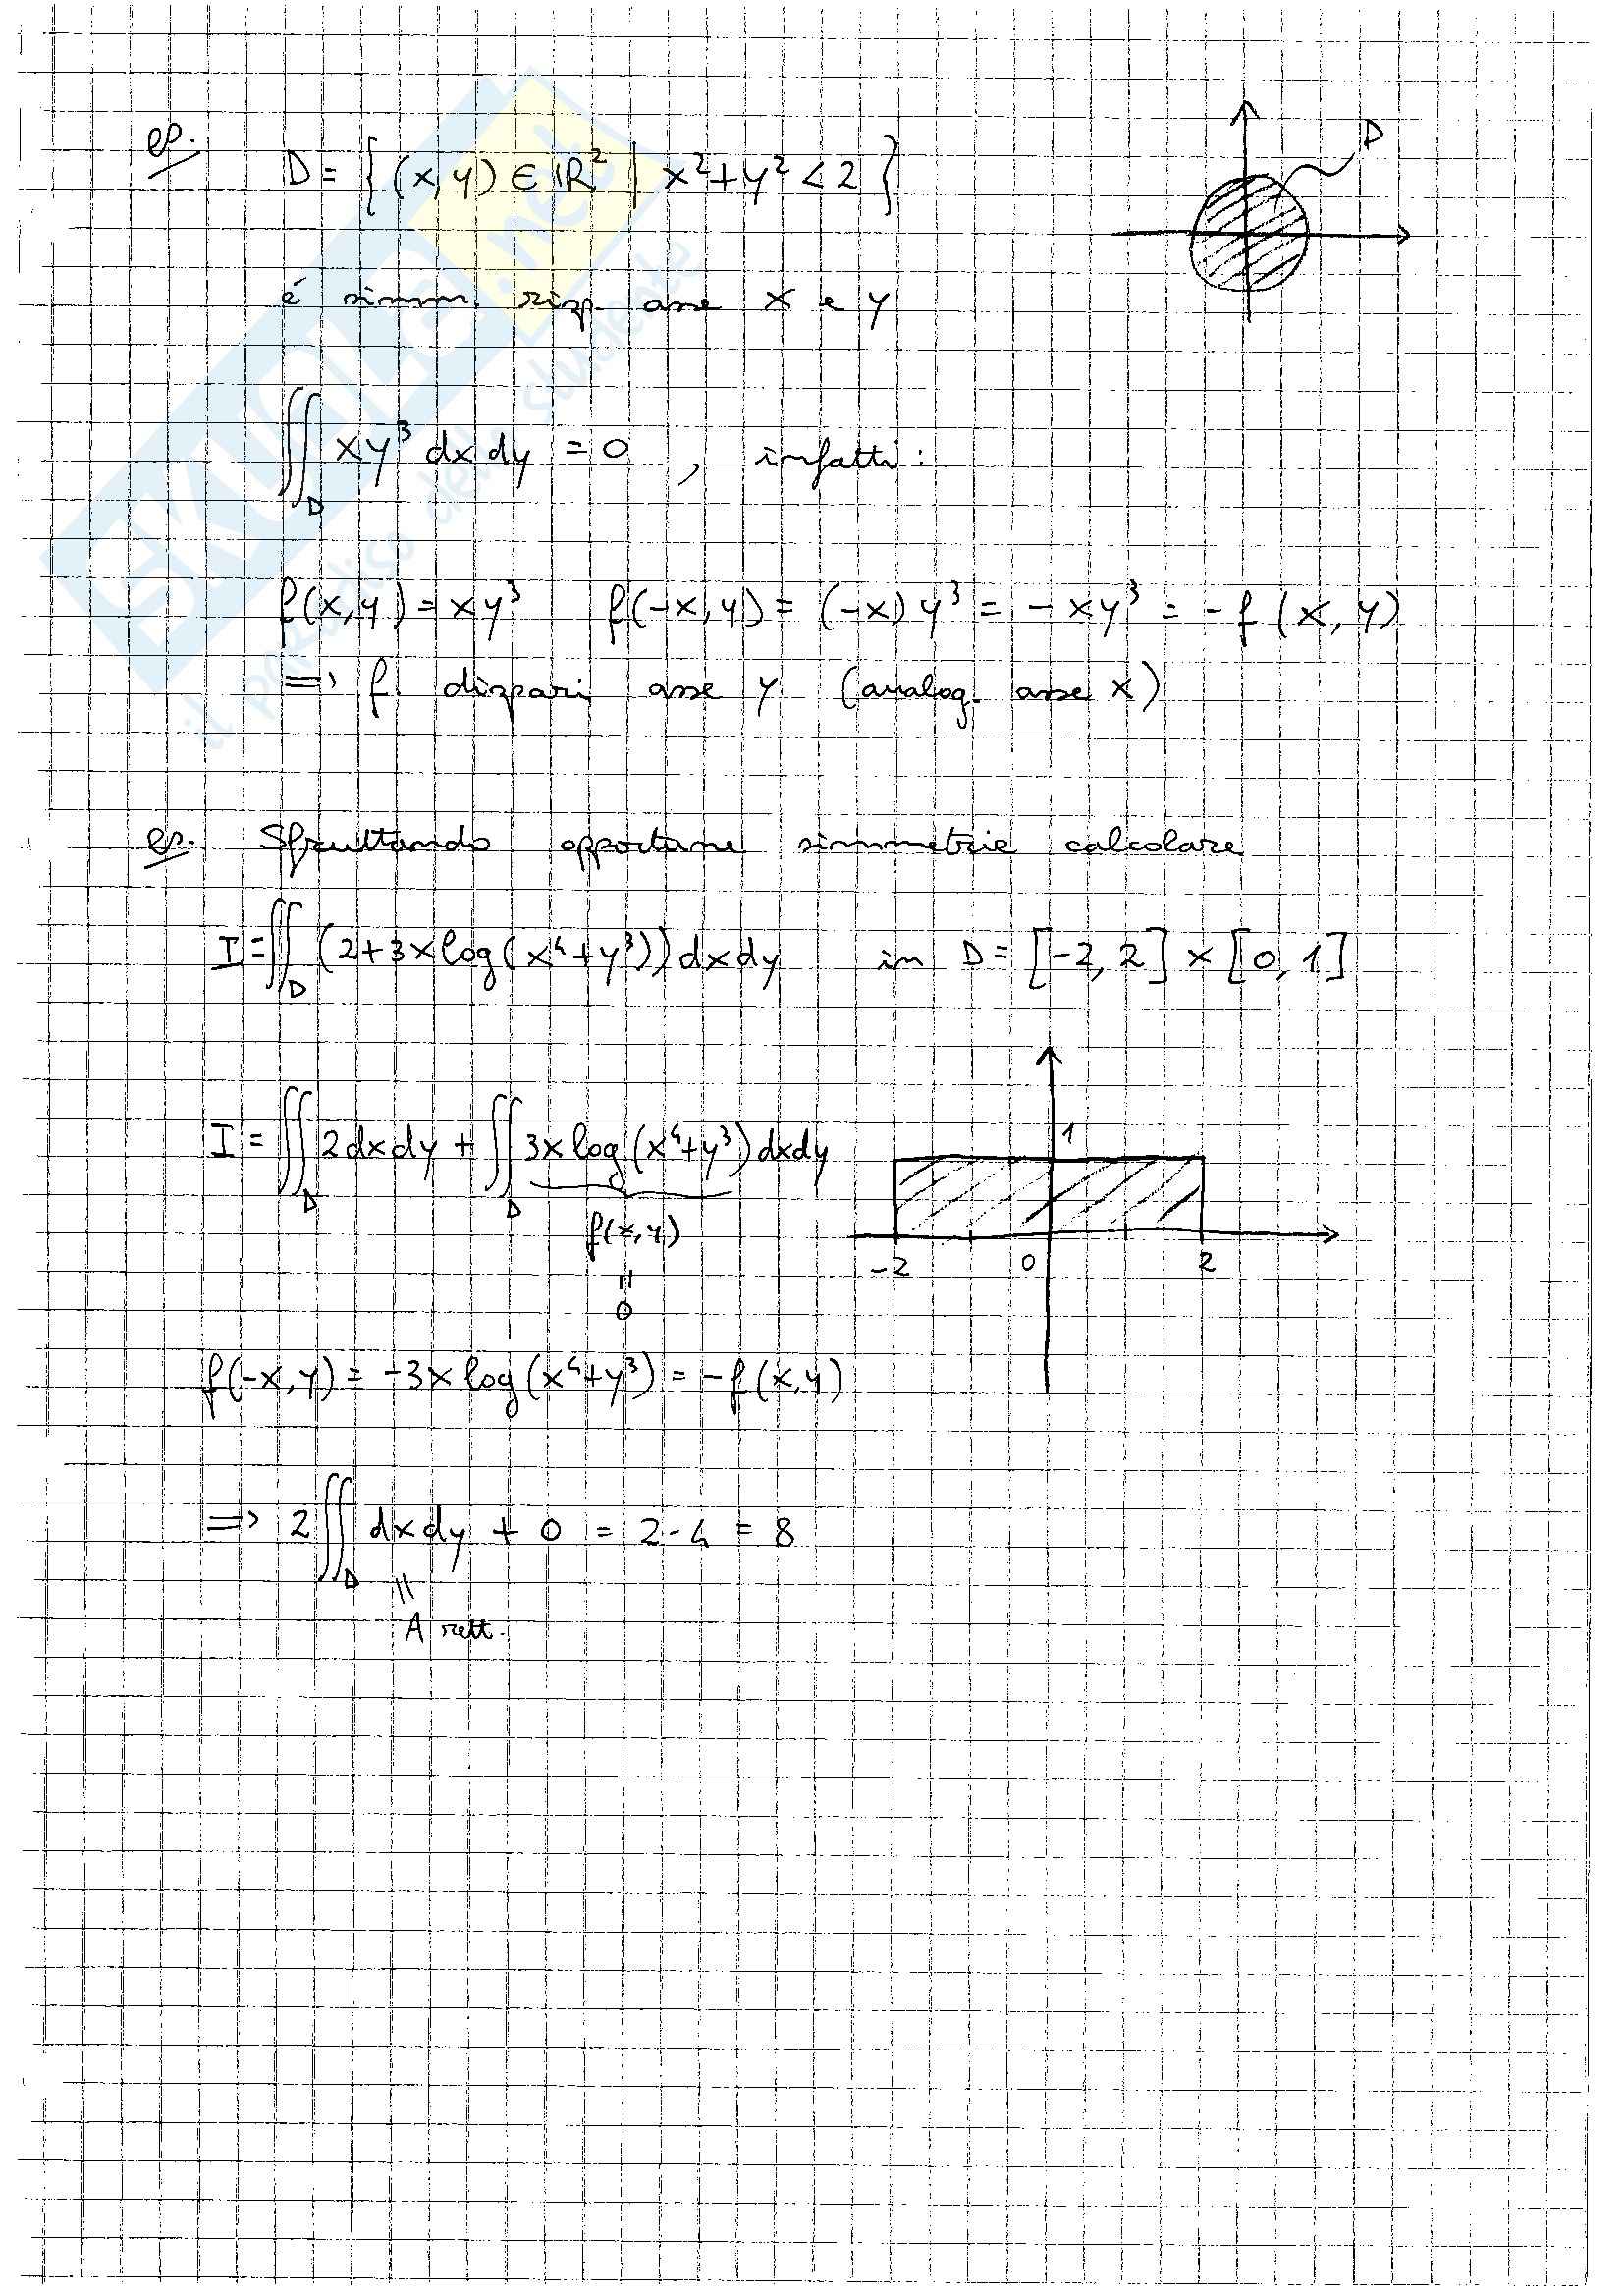 es. D = { (x, y) ∈ ℝ² | x² + y² < 2 }
D
é simm. risp. asse x e y
∬_D xy³ dx dy = 0 , infatti:
f(x, y) = xy³ f(-x, y) = (-x) y³ = - xy³ = - f (x, y)
⇒ f dispari asse y (analog. asse x)
es. Sfruttando opportune simmetrie calcolare
I = ∬_D (2+3x log(x⁴+y³)) dx dy in D = [-2, 2] × [0, 1]
I = ∬_D 2 dx dy + ∬_D 3x log (x⁴+y³) dx dy
1
f(x, y)
-2 0 2
=
0
f(-x, y) = -3x log (x⁴+y³) = - f (x, y)
⇒ 2 ∬_D dx dy + 0 = 2·4 = 8
=
A rett.
SKUOLA.net
il paradiso dello studente